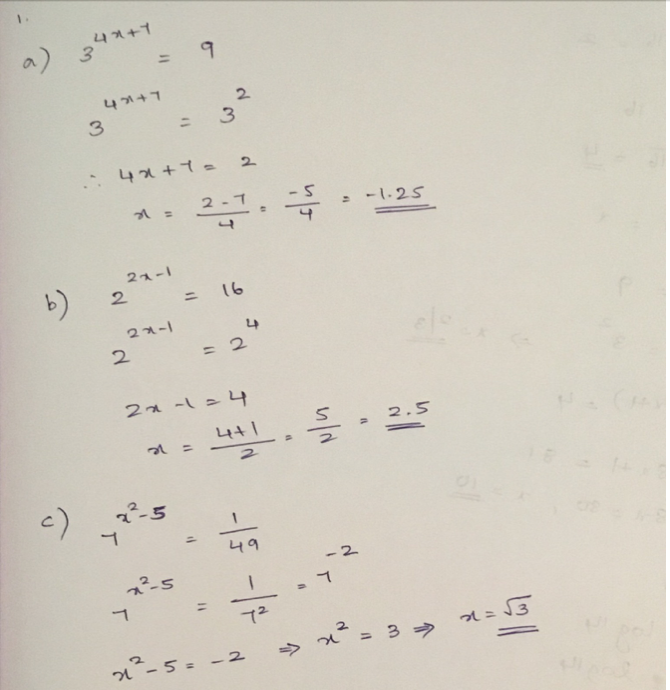 1.
a) 3^(4x+7) = 9
3^(4x+7) = 3^2
∴ 4x+7 = 2
x = (2-7)/4 = -5/4 = -1.25
b) 2^(2x-1) = 16
2^(2x-1) = 2^4
2x-1 = 4
x = (4+1)/2 = 5/2 = 2.5
c) 7^(x²-5) = 1/49
7^(x²-5) = 1/7² = 7^(-2)
x²-5 = -2 ⇒ x² = 3 ⇒ x = √3